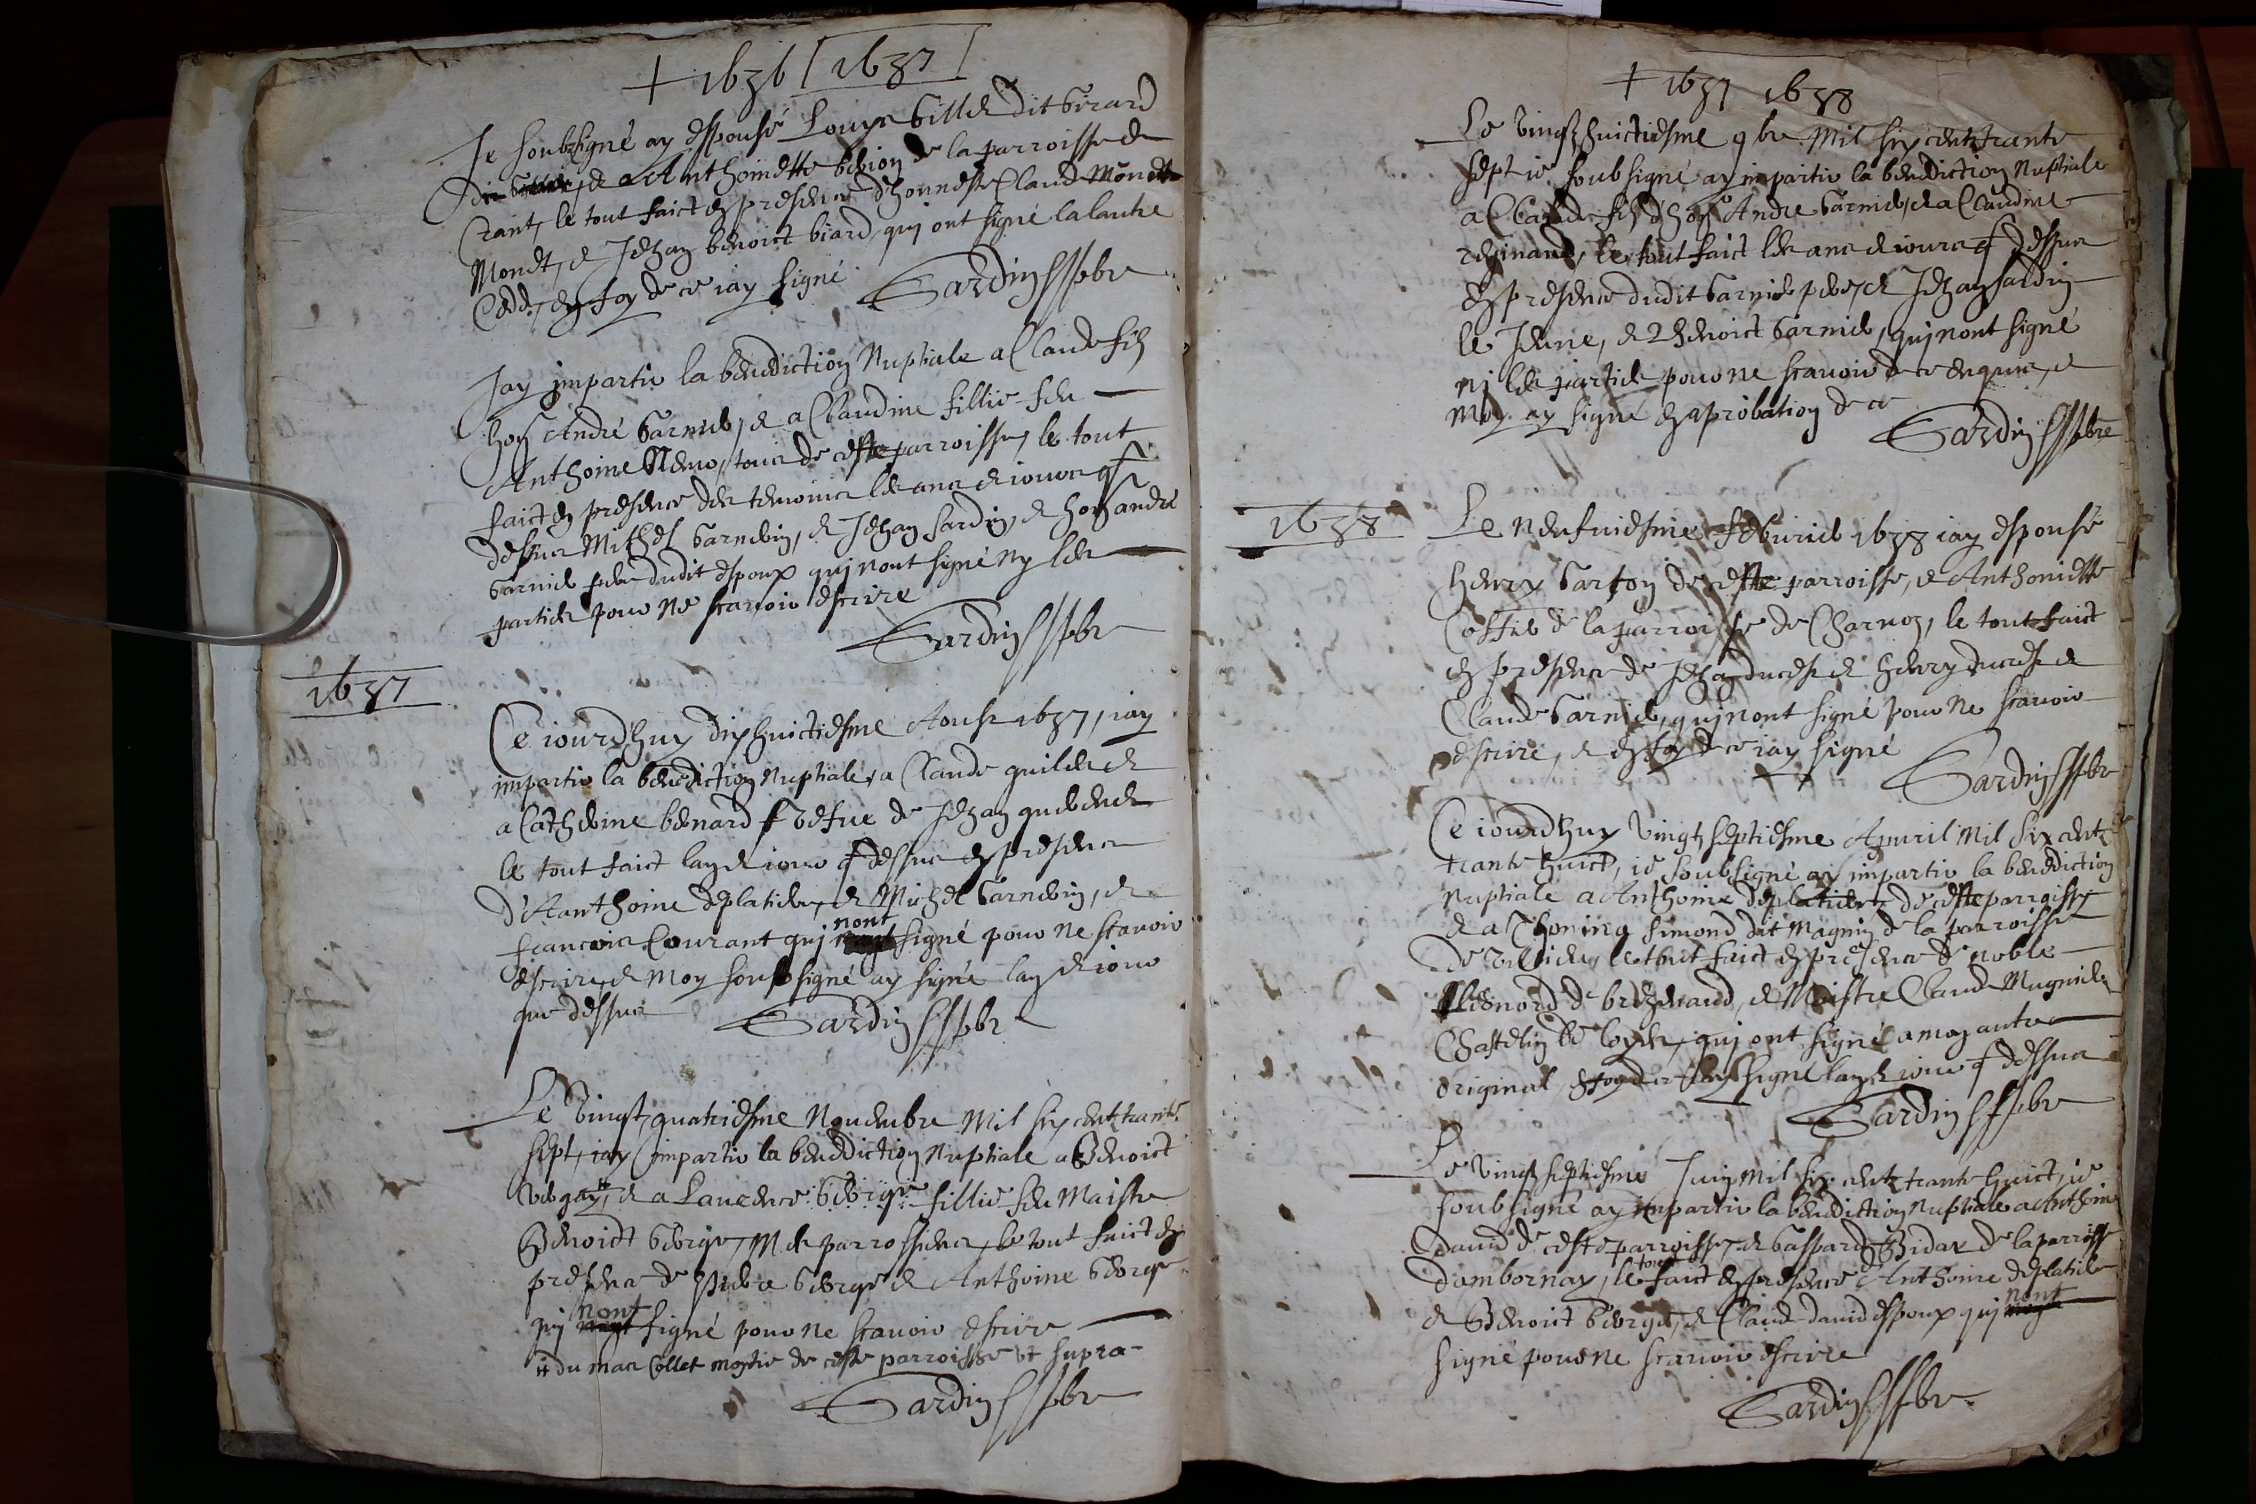 + 1636 | 1637
Je soubsigné ay espousé Louys Gillet dit Girard
et Anthoinette de la parroisse de
Crant, le tout faict en presence d'honneste Claude Monet
Monet, et Jehan benoict biard, qui ont signé
en foy de ce iay signé Sardin pbre
Jay imparti la benediction Nuptiale a Claude filz
hon André Garnier, et a Claudine fillie feu
Anthoine tous de ceste parroisse, le tout
faict en presence des temoins les ans et iours q
dessus Michel Garnerin, et Jehan Sardin, et hon André
Garnier frere dudit espoux qui nont signé ny les
parties pour ne scavoir escrire
Sardin pbre
1637
Ce iourdhuy dixhuictiesme Aoust 1637, iay
imparti la benediction Nuptiale, a Claude et
a Catherine benard vefue de Jehan
le tout faict lan et iour q dessus en presence
d'Aanthoine deplatieres, et Michel Garnerin, et
francois Courant qui nont signé pour ne scavoir
escrire, et Moy soubsigné ay signé lan et iour
que dessus Sardin pbre
Le vingt quatriesme Nouembre Mil six centz trante
sept, iay imparti la benediction Nuptiale a Benoict
et a Laurence George fillie feu Maistre
Benoict George, M de parrossiens, le tout faict en
presence de Pierre George et Anthoine George
qui nont signé pour ne scavoir escrire
# du mas Collet de ceste parroisse ut supra
Sardin pbre
+ 1637 1638
Le vingt huictiesme 9bre Mil six centz trante
sept ie soubsigné ay imparti la benediction Nuptiale
a Claude filz d'hon Andre Garnier, et a Claudine
le tout faict les ans et iours q dessus
en presence dudit Garnier pere, et Jehan Sardin
le Jeune, et Benoict Garnier, qui nont signé
ni les parties pour ne scavoir de ce enquis, et
Moy ay signé en aprobation de ce
Sardin pbre
1638
Le Neufuiesme feburier 1638 iay espousé
henry Garson de ceste parroisse, et Anthoinette
Cottier de la parroisse de Charnoz, le tout faict
en presence de Jehan ducrest et henry ducrest et
Claude Garnier, qui nont signé pour ne scavoir
escrire, et en foy de ce iay signé
Sardin pbre
Ce iourdhuy vingt septiesme Apuril Mil six centz
trante huict, ie soubsigné ay imparti la benediction
Nuptiale a Anthoine deplatieres de ceste parroisse
et a Thonina Simond dit Magnin de la parroisse
de le tout faict en presence de noble
Leonord de et Maistre Claude Mugnier
Chastelin de qui ont signé a mon autre
original, en foy de ce iay signé lan et iour q dessus
Sardin pbre
Le vingt septiesme Juin Mil six centz trante huict, ie
soubsigné ay imparti la benediction Nuptiale a Anthoine
Dauid de ceste parroisse, et Gasparde Bidat de la parroisse
d'ambornay, le tout faict en presence d'Anthoine deplatiere
et Benoict George, et Claude dauid espoux qui nont
signé pour ne scavoir escrire
Sardin pbre